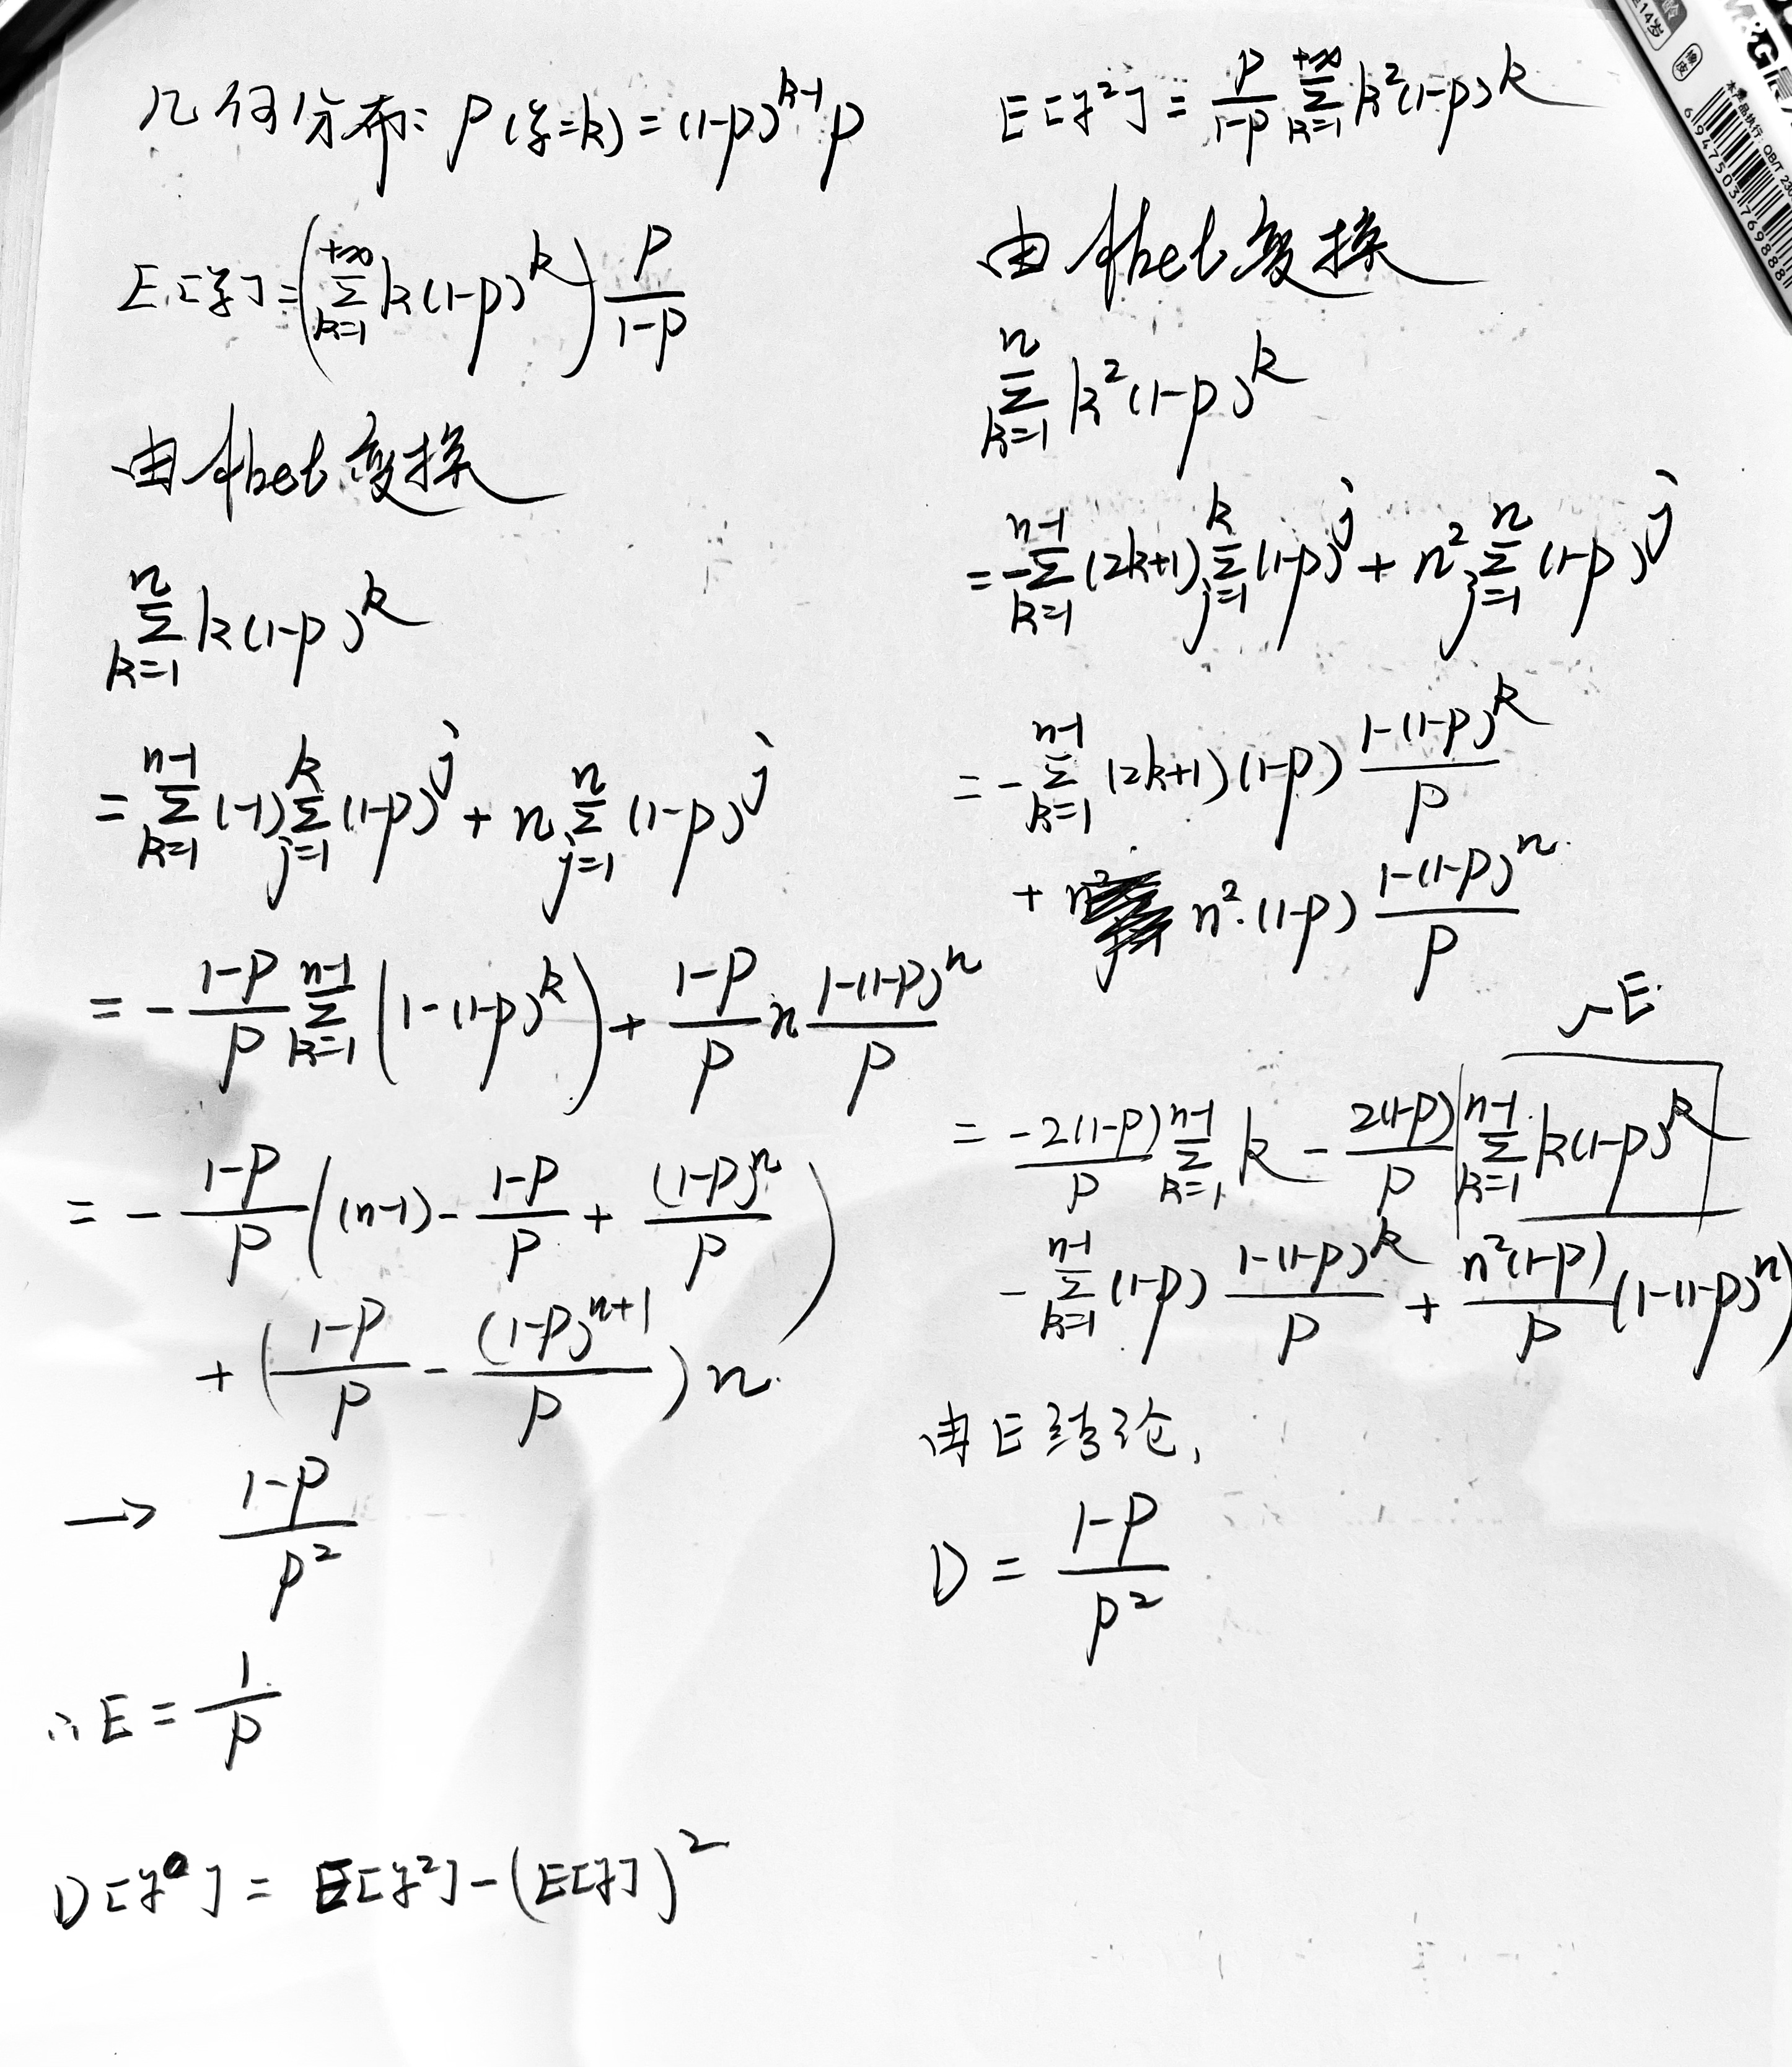 几何分布: P(ξ=k)=(1-p)^{k-1}p
E[ξ]=(\sum_{k=1}^{+∞}k(1-p)^k)\frac{p}{1-p}
由Abel变换
\sum_{k=1}^{n}k(1-p)^k
=\sum_{k=1}^{n-1}(-1)\sum_{j=1}^{k}(1-p)^j+n\sum_{j=1}^{n}(1-p)^j
=-\frac{1-p}{p}\sum_{k=1}^{n-1}(1-(1-p)^k)+\frac{1-p}{p}n\frac{1-(1-p)^n}{p}
=-\frac{1-p}{p}((n-1)-\frac{1-p}{p}+\frac{(1-p)^n}{p})
+(\frac{1-p}{p}-\frac{(1-p)^{n+1}}{p})n.
→ \frac{1-p}{p^2}
∴E=\frac{1}{p}
D[ξ]=E[ξ^2]-(E[ξ])^2
E[ξ^2]=\frac{p}{1-p}\sum_{k=1}^{+∞}k^2(1-p)^k
由Abel变换
\sum_{k=1}^{n}k^2(1-p)^k
=-\sum_{k=1}^{n-1}(2k+1)\sum_{j=1}^{k}(1-p)^j+n^2\sum_{j=1}^{n}(1-p)^j
=-\sum_{k=1}^{n-1}(2k+1)(1-p)\frac{1-(1-p)^k}{p}
+n^2·(1-p)\frac{1-(1-p)^n}{p}
~E.
=\frac{-2(1-p)}{p}\sum_{k=1}^{n-1}k-\frac{2(1-p)}{p}\sum_{k=1}^{n-1}k(1-p)^k
-\sum_{k=1}^{n-1}(1-p)\frac{1-(1-p)^k}{p}+\frac{n^2(1-p)}{p}(1-(1-p)^n)
由E结论,
D=\frac{1-p}{p^2}
14岁
橡皮
M&G晨
QB/T 23
6947503769888